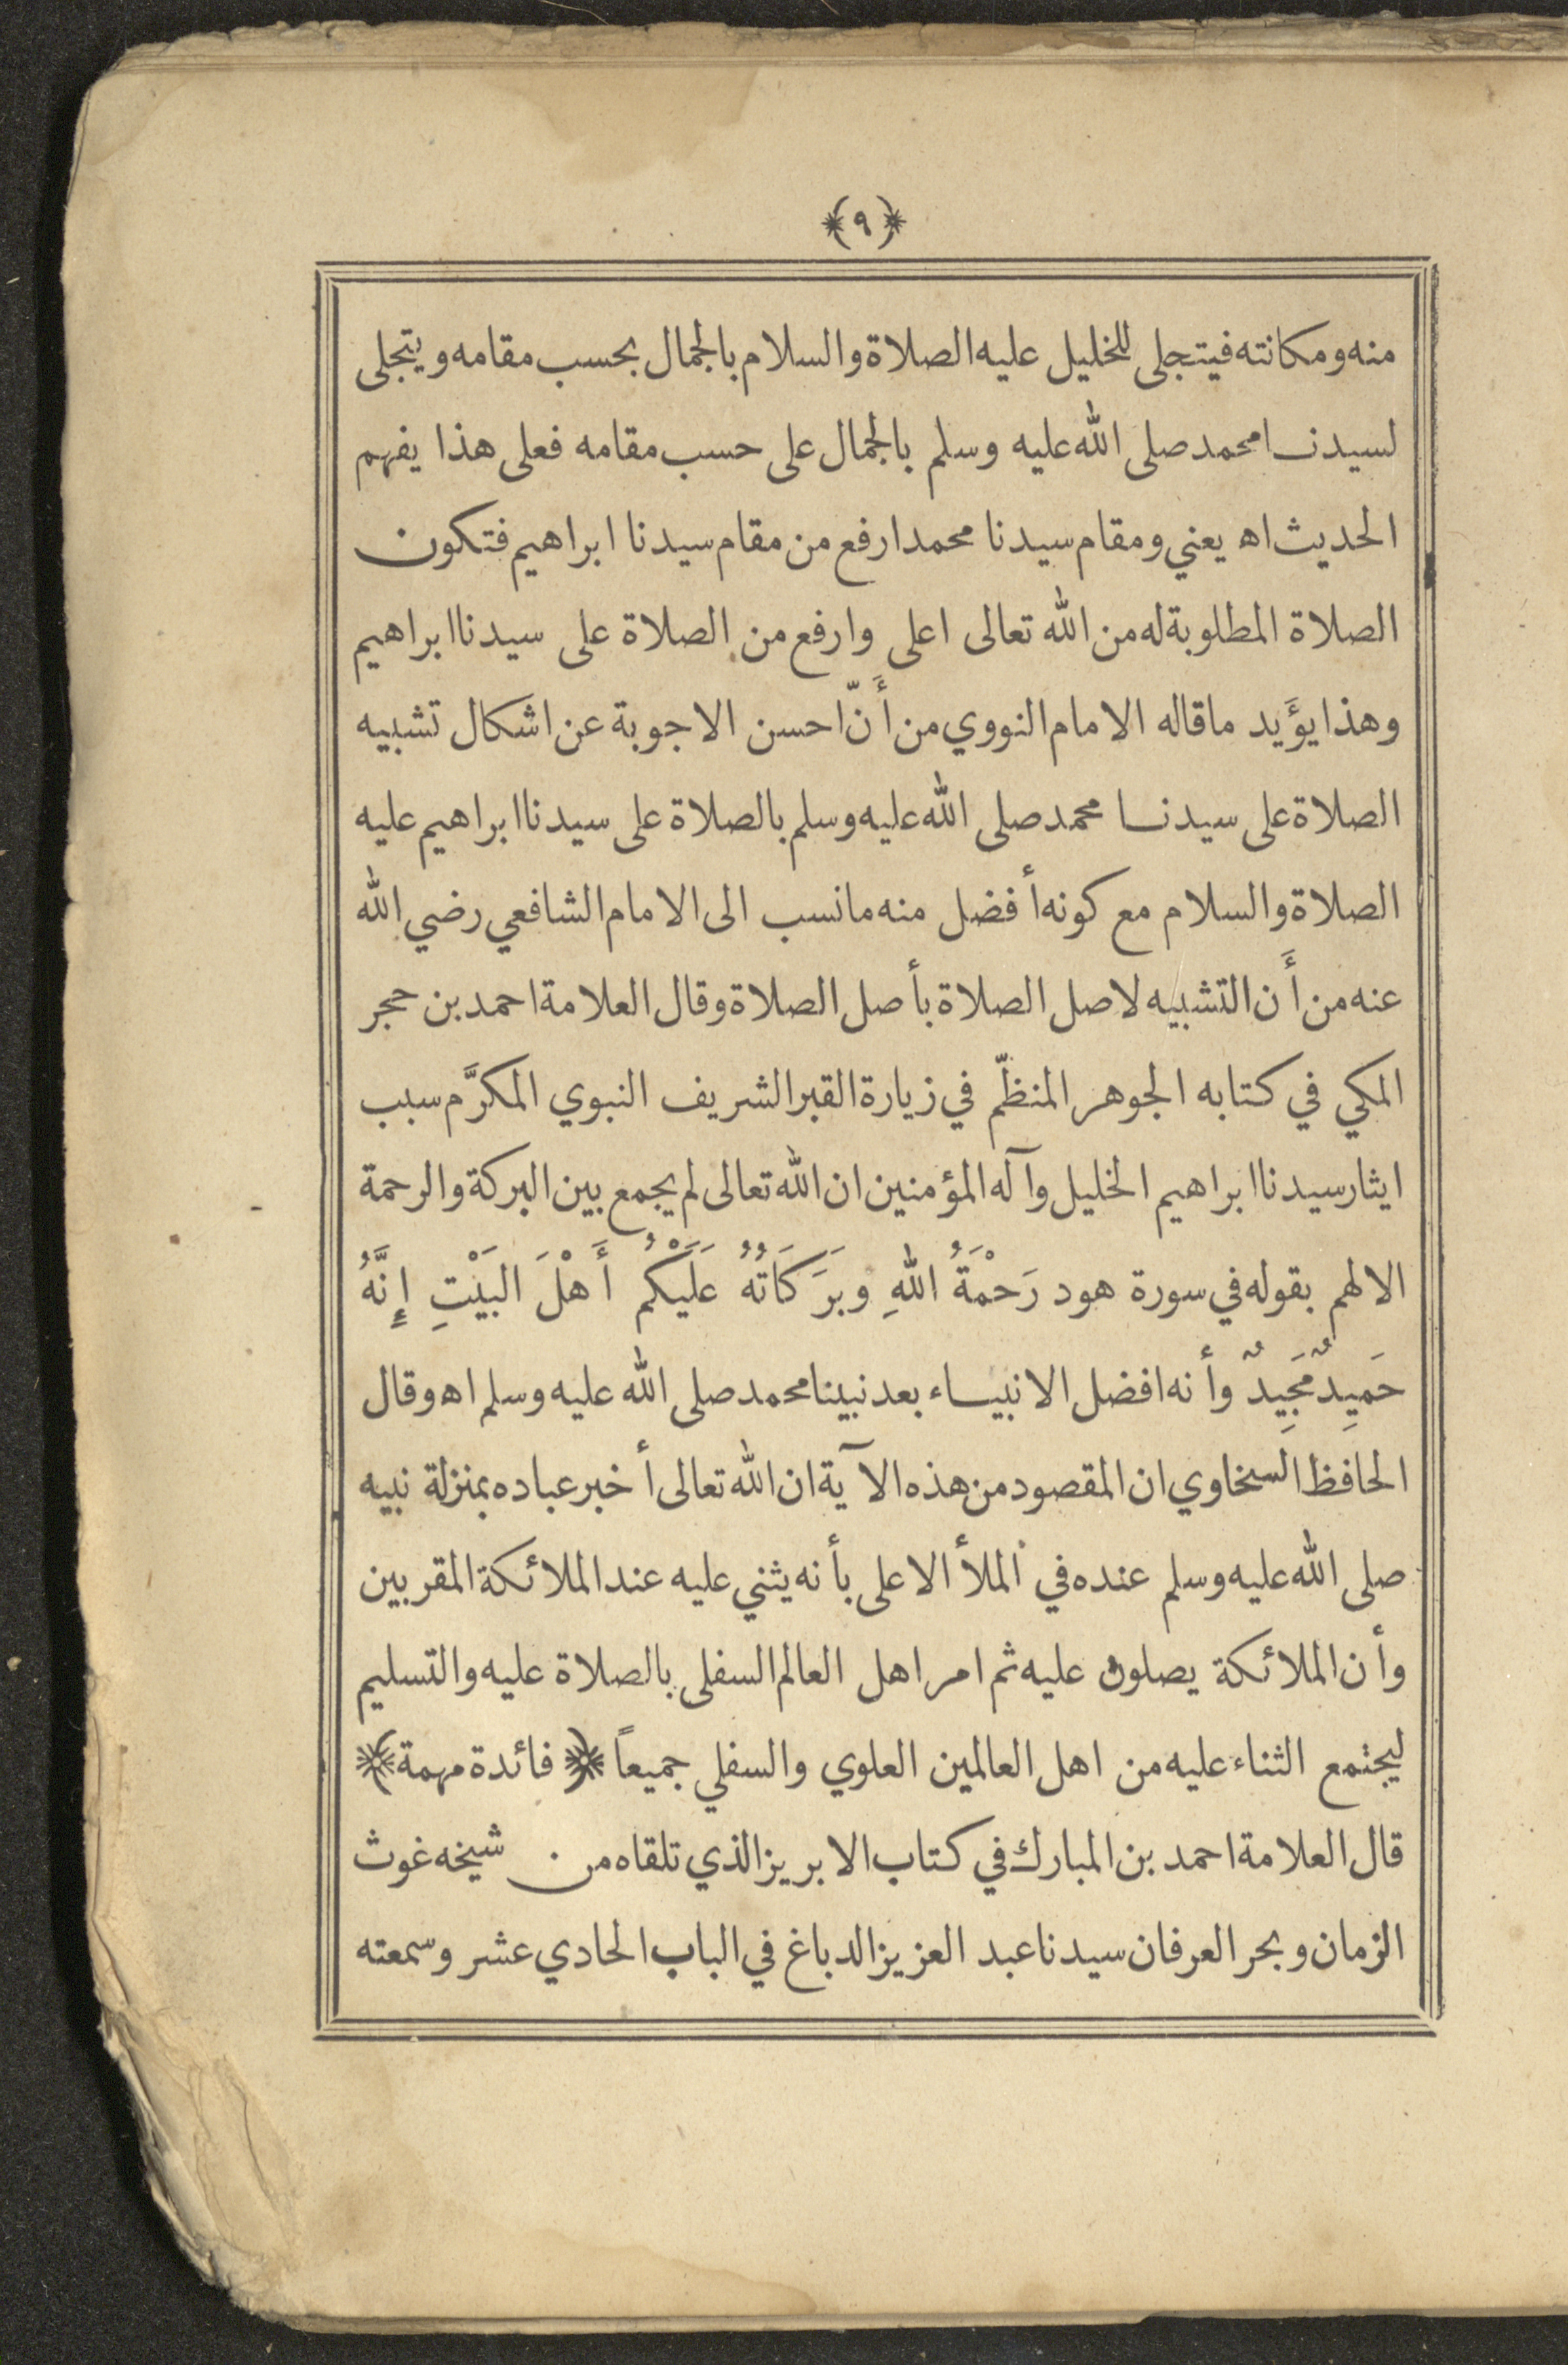 ﴿٩﴾
منه ومكانته فيتجلى للخليل عليه الصلاة والسلام بالجمال بحسب مقامه ويتجلى
لسيدنا محمد صلى الله عليه وسلم بالجمال على حسب مقامه فعلى هذا يفهم
الحديث اه يعني ومقام سيدنا محمد ارفع من مقام سيدنا ابراهيم فتكون
الصلاة المطلوبة له من الله تعالى اعلى وارفع من الصلاة على سيدنا ابراهيم
وهذا يؤَيد ما قاله الامام النووي من أَنّ احسن الاجوبة عن اشكال تشبيه
الصلاة على سيدنا محمد صلى الله عليه وسلم بالصلاة على سيدنا ابراهيم عليه
الصلاة والسلام مع كونه أفضل منه ما نسب الى الامام الشافعي رضي الله
عنه من أَن التشبيه لاصل الصلاة بأصل الصلاة وقال العلامة احمد بن حجر
المكي في كتابه الجوهر المنظّم في زيارة القبر الشريف النبوي المكرَّم سبب
ايثار سيدنا ابراهيم الخليل وآله المؤمنين ان الله تعالى لم يجمع بين البركة والرحمة
الا لهم بقوله في سورة هود رَحْمَةُ اللهِ وبَرَكَاتُهُ عَلَيْكُم أَهْلَ البَيْتِ إِنَّهُ
حَمِيدٌ مَجِيدٌ وأنه افضل الانبياء بعد نبينا محمد صلى الله عليه وسلم اه وقال
الحافظ السخاوي ان المقصود من هذه الآية ان الله تعالى أخبر عباده بمنزلة نبيه
صلى الله عليه وسلم عنده في الملأ الاعلى بأنه يثني عليه عند الملائكة المقربين
وأن الملائكة يصلون عليه ثم امر اهل العالم السفلى بالصلاة عليه والتسليم
ليجتمع الثناء عليه من اهل العالمين العلوي والسفلي جميعاً ﴿فائدة مهمة﴾
قال العلامة احمد بن المبارك في كتاب الابريز الذي تلقاه من شيخه غوث
الزمان وبحر العرفان سيدنا عبد العزيز الدباغ في الباب الحادي عشر وسمعته